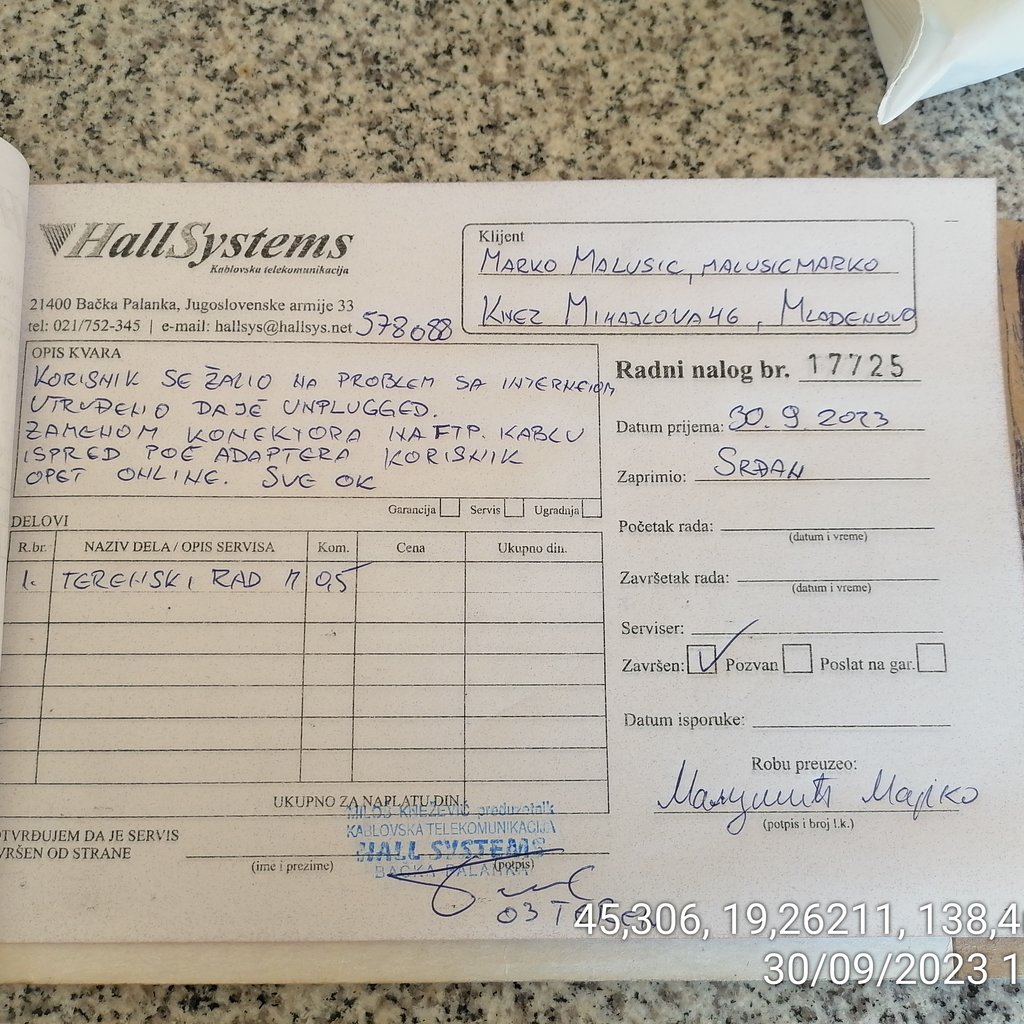 HallSystems
Kablovska telekomunikacija
21400 Bačka Palanka, Jugoslovenske armije 33
tel: 021/752-345 | e-mail: hallsys@hallsys.net
578088
Klijent
MARKO MALUSIC, MALUSICMARKO
KNEZ MIHAJLOVA 46, MLADENOVO
OPIS KVARA
KORISNIK SE ŽALIO NA PROBLEM SA INTERNETOM
UTRVĐENO DA JE UNPLUGGED.
ZAMENOM KONEKTORA NA FTP. KABLU
ISPRED POE ADAPTERA KORISNIK
OPET ONLINE. SVE OK
Garancija Servis Ugradnja
Radni nalog br. 17725
Datum prijema: 30. 9. 2023
Zaprimio: SRĐAN
Početak rada:
(datum i vreme)
Završetak rada:
(datum i vreme)
Serviser:
Završen: Pozvan Poslat na gar.
Datum isporuke:
Robu preuzeo:
Малушић Марко
(potpis i broj l.k.)
DELOVI
R.br. NAZIV DELA / OPIS SERVISA Kom. Cena Ukupno din.
1. TERENSKI RAD 0,5
UKUPNO ZA NAPLATU DIN.
OTVRĐUJEM DA JE SERVIS
VRŠEN OD STRANE
(ime i prezime)
(potpis)
MILOŠ KNEŽEVIĆ preduzetnik
KABLOVSKA TELEKOMUNIKACIJA
HALL SYSTEMS
BAČKA PALANKA
03
45,306, 19,26211, 138,4
30/09/2023 1